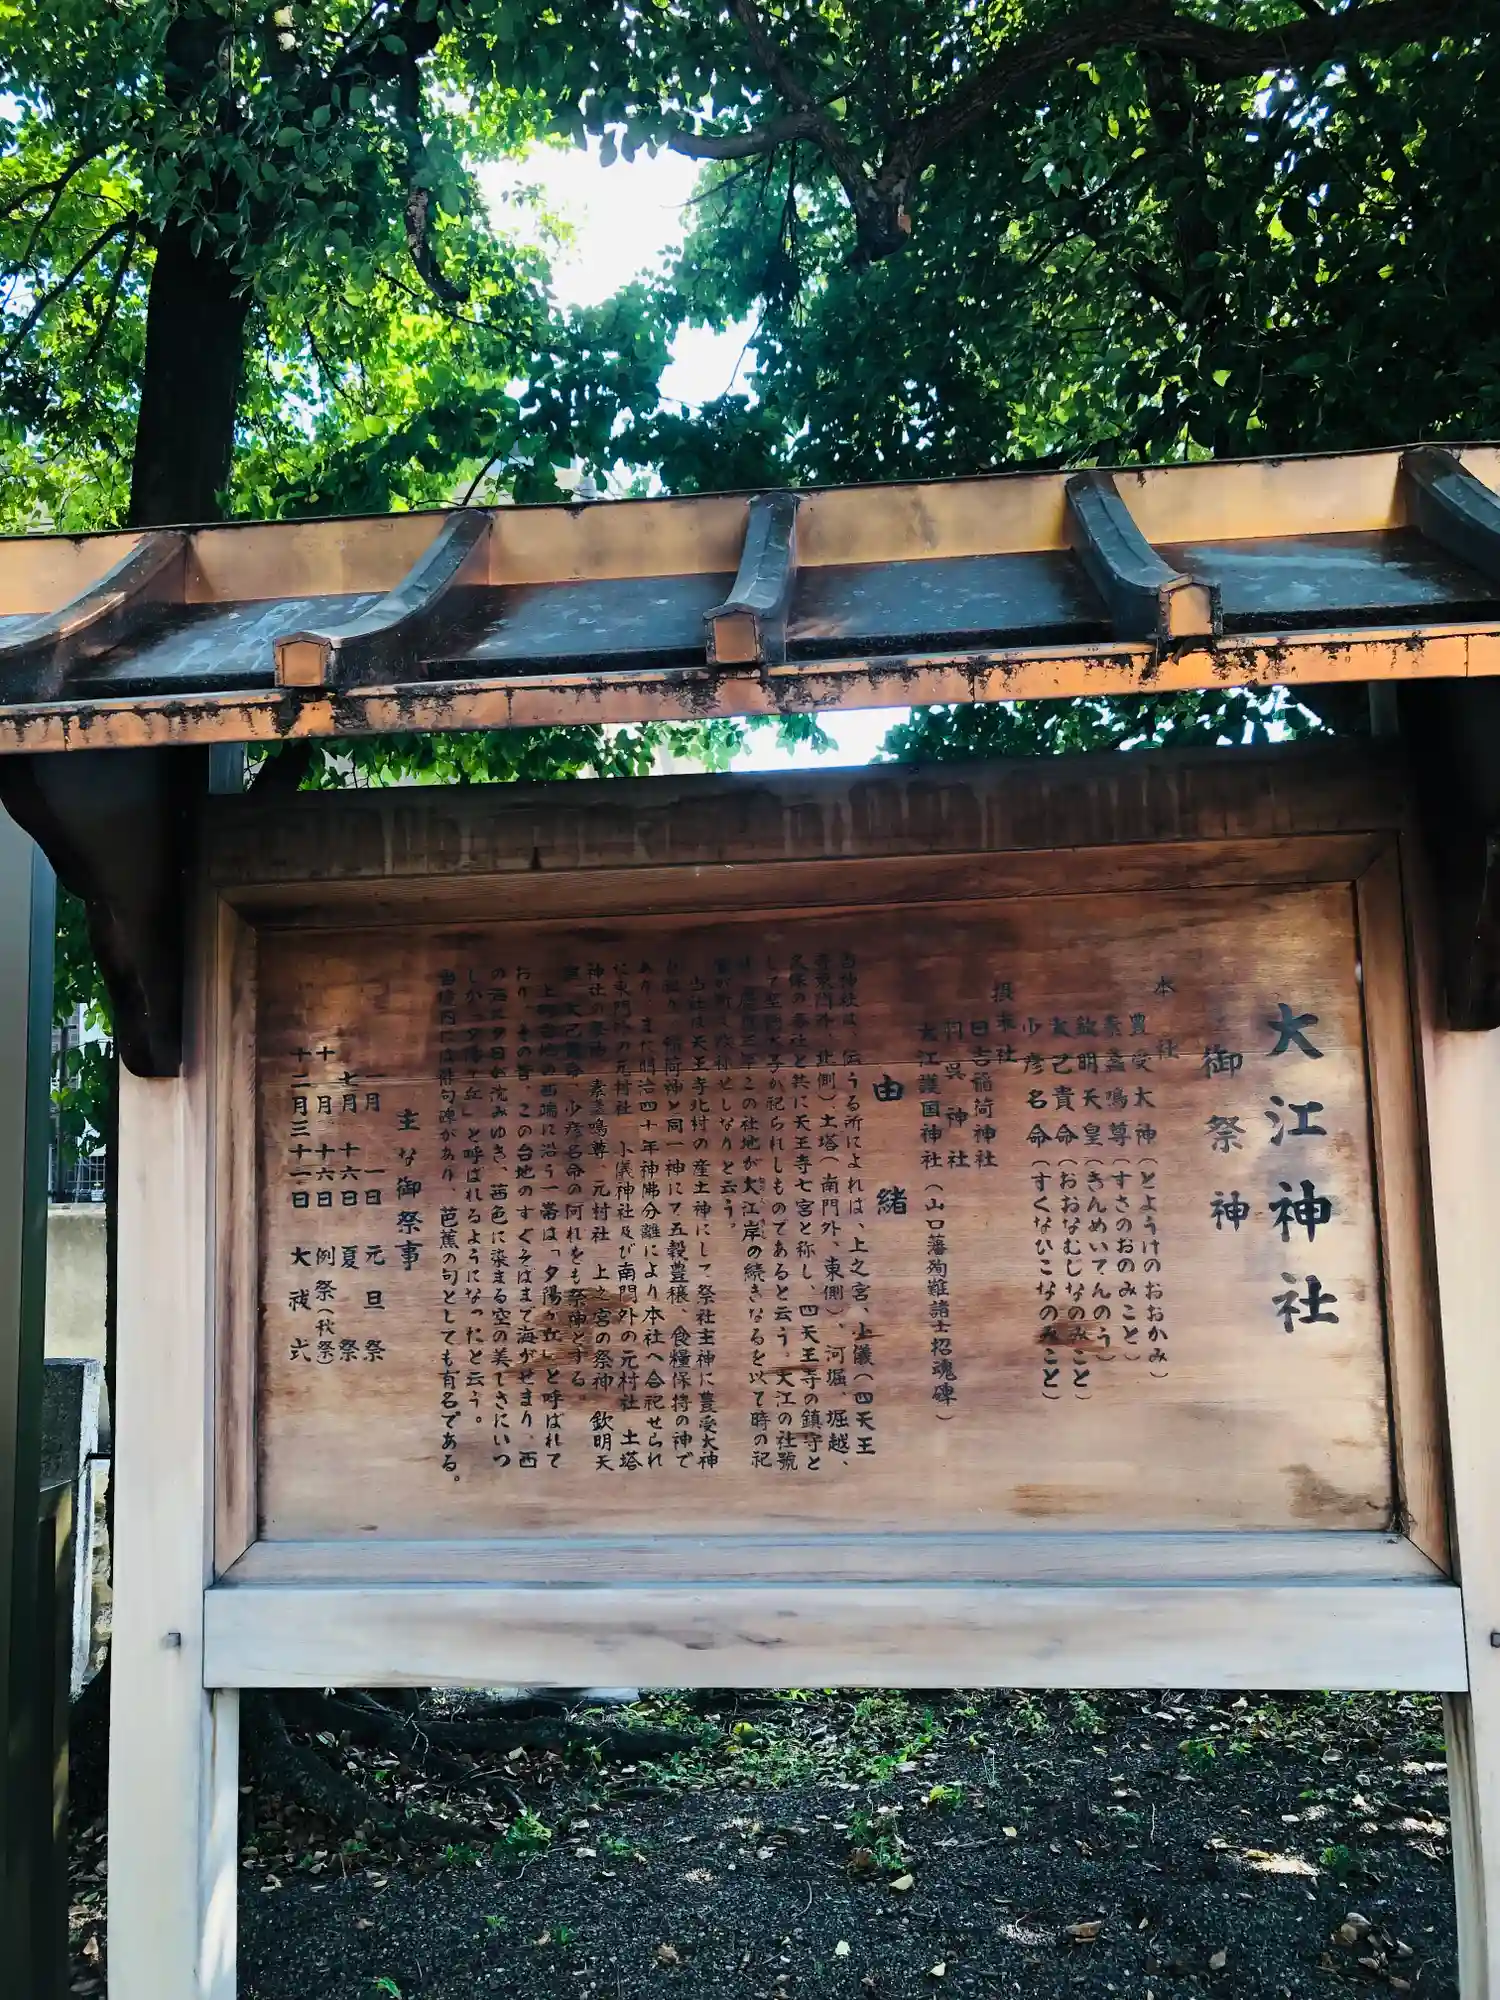 大江神社
御祭神
本社
豊受大神(とようけのおおかみ)
素盞鳴尊(すさのおのみこと)
欽明天皇(きんめいてんのう)
大己貴命(おおなむじなのみこと)
少彦名命(すくなひこなのみこと)
摂末社
日吉稲荷神社
神社
大江護国神社(山口藩殉難諸士招魂碑)
由緒
当神社は、伝うる所によれは、上之宮、上儀(四天王
寺東門外、北側)、土塔(南門外、東側)、河堀、堀越、
久保の各社と共に天王寺七宮と称し、四天王寺の鎮守と
して聖徳太子か祀られしものであると云う。大江の社號
この社地が大江岸の続きなるを以て時の祀
改称せしなりと云う。
当社は天王寺北村の産土神にして祭社主神に豊受大神
稲荷神と同一神にて五穀豊穣、食糧保持の神で
あり、また明治四十年神佛分離により本社へ合祀せられ
に東門外の元村社 小儀神社及び南門外の元村社 土塔
神社の祭神 素盞鳴尊、元村社 上之宮の祭神 欽明天
皇、大己貴命、少彦名命の何れをも祭神とする。
上町台地の西端に沿う一帯は「夕陽ヶ丘」と呼ばれて
おり、その昔、この台地のすぐそばまで海がせまり、西
の海に夕日が沈みゆき、茜色に染まる空の美しさにいつ
しか「夕陽ヶ丘」と呼ばれるようになったと云う。
当境内には俳句碑があり、芭蕉の句としても有名である。
主な御祭事
一月 一日 元旦祭
七月 十六日 夏祭
十月 十六日 例祭(秋祭)
十二月三十一日 大祓式